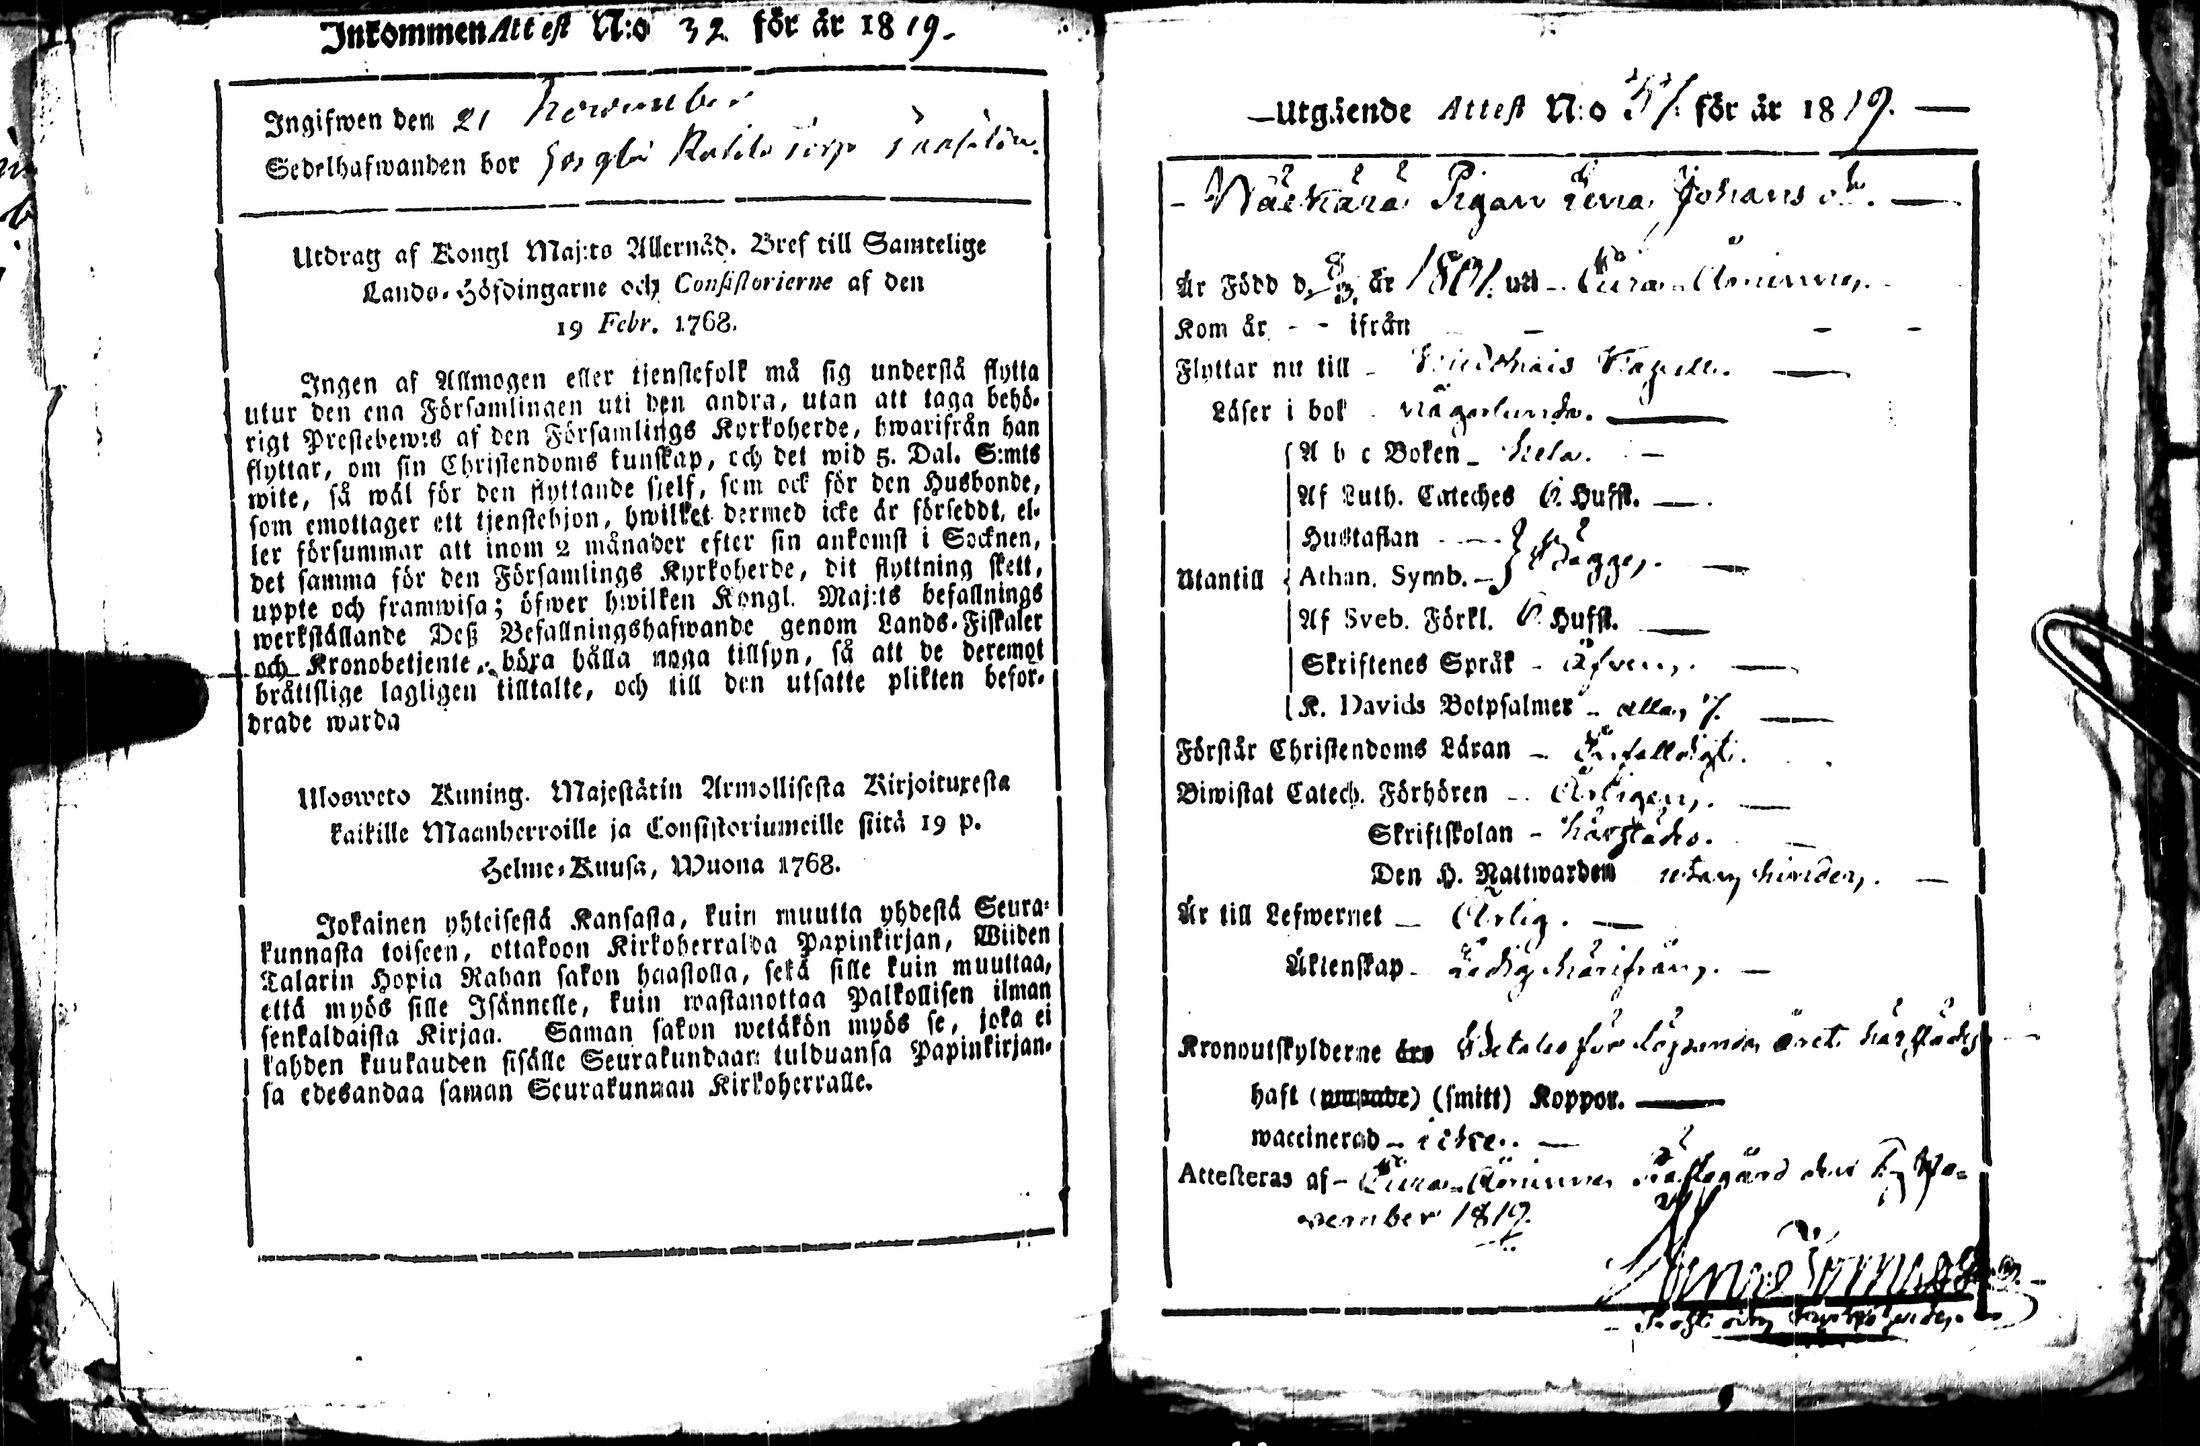 Inkommen Attest N:o 32 för år 1819.
Ingifwen den 21 November
Sedelhafwanden bor
Utdrag af Kongl Maj:ts Allernåd. Bref till Samtelige
Lands-Höfdingarne och Consistorierne af den
19 Febr. 1768.
Ingen af Allmogen eller tjenstefolk må sig understå flytta
utur den ena Församlingen uti den andra, utan att taga behö-
rigt Prestebewis af den Församlings Kyrkoherde, hwarifrån han
flyttar, om sin Christendoms kunskap, och det wid 5. Dal. S:mts
wite, så wäl för den flyttande sjelf, som ock för den Husbonde,
som emottager ett tjenstehjon, hwilket dermed icke är försedt, el-
ler försummar att inom 2 månader efter sin ankomst i Socknen,
det samma för den Församlings Kyrkoherde, dit flyttning skett,
uppte och framwisa; öfwer hwilken Kongl. Maj:ts befallnings
werkställande Deß Befallningshafwande genom Lands-Fiskaler
och Kronobetjente, böra hålla noga tillsyn, så att de deremot
bråttslige lagligen tilltalte, och till den utsatte plikten befor-
drade warda
Ulosweto Kuning. Majestätin Armollisesta Kirjoituxesta
kaikille Maanherroille ja Consistoriumeille siitä 19 p.
Helme-Kuusa, Wuona 1768.
Jokainen yhteisestä Kansasta, kuin muutta yhdestä Seura-
kunnasta toiseen, ottakoon Kirkoherralda Papinkirjan, Wiiden
Talarin Hopia Rahan sakon haastolla, sekä sille kuin muuttaa,
että myös sille Isännelle, kuin wastanottaa Palkollisen ilman
senkaldaista Kirjaa. Saman sakon wetäkön myös se, joka ei
kahden kuukauden sisälle Seurakundaan tulduansa Papinkirjan-
sa edesandaa saman Seurakunnan Kirkoherralle.
Utgående Attest N:o för år 1819.
Pigan Lena Johansdr.
Är Född d. 8/3 år 1801. uti Eura Åminne.
Kom år - - ifrån
Flyttar nu till Kapell.
Läser i bok någorlunda.
A b c Boken hela.
Af Luth. Cateches 6. Hufst.
Hustaflan
Utantill Athan. Symb. Bägge,.
Af Sveb. Förkl. 6 Hufst.
Skriftenes Språk äfven,.
K. Davids Botpsalmer alla, 7.
Förstår Christendoms Läran Enfalldigt.
Biwistat Catech. Förhören Årligen,.
Skriftskolan härstädes.
Den H. Nattwarden utan hinder,.
Är till Lefwernet Ärlig.
Äktenskap Ledig härifrån,.
Kronoutskylderne äro Betalte för löpande året härstädes
haft (smitt) Koppor.
waccinerad icke.
Attesteras af Eura Åminne Prästegård den No-
vember 1819.